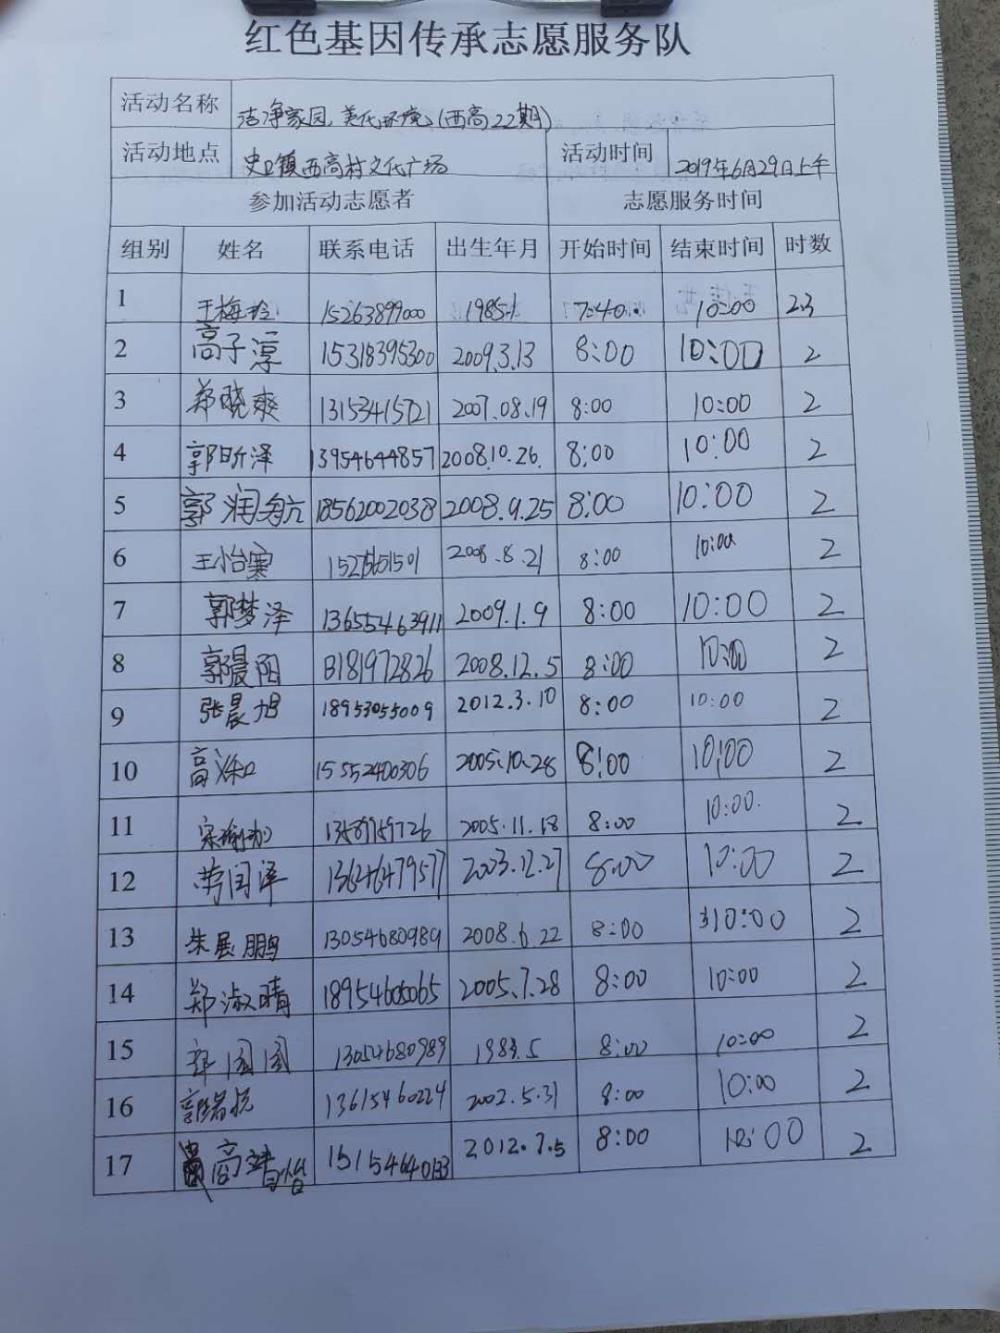 红色基因传承志愿服务队
活动名称 洁净家园,美化环境(西高22期)
活动地点 史口镇西高村文化广场 活动时间 2019年6月29日上午
参加活动志愿者 志愿服务时间
组别 姓名 联系电话 出生年月 开始时间 结束时间 时数
1 王梅玲 15263899000 1985.1 7:40 10:00 2.3
2 高子淳 15318395300 2009.3.13 8:00 10:00 2
3 郑晓爽 13153415721 2007.08.19 8:00 10:00 2
4 郭昕泽 13954644857 2008.10.26. 8:00 10:00 2
5 郭润航 18562002038 2008.9.25 8:00 10:00 2
6 王怡寒 2008.8.21 8:00 10:00 2
7 郭梦泽 13655463911 2009.1.9 8:00 10:00 2
8 郭晨阳 13181972826 2008.12.5 8:00 10:00 2
9 张晨旭 18953055009 2012.3.10 8:00 10:00 2
10 高 15552400306 2005.10.28 8:00 10:00 2
11 2005.11.18 8:00 10:00. 2
12 13646479577 2003.12.27 8:00 10:00 2
13 朱展鹏 13054680989 2008.6.22 8:00 10:00 2
14 郑淑晴 18954606065 2005.7.28 8:00 10:00 2
15 13054680989 1983.5 8:00 10:00 2
16 13615460224 2002.5.31 8:00 10:00 2
17 高靖怡 15154640133 2012.7.5 8:00 10:00 2